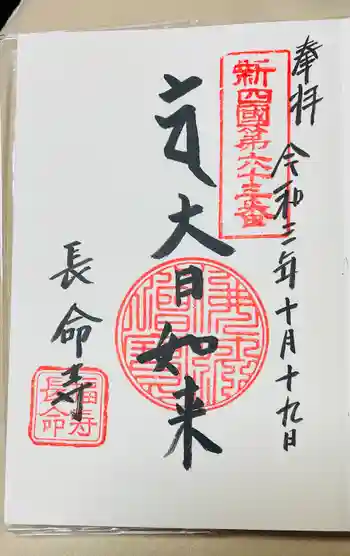 奉拝 令和三年十月十九日
新四國第六十三番
大日如来
佛法
僧寶
長命寺
福寿
長命